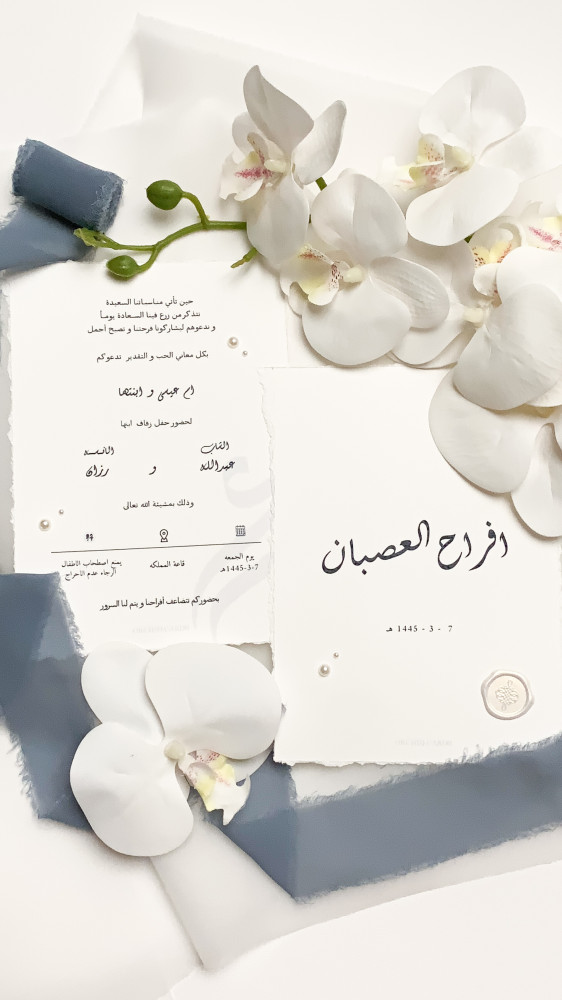 حين تأتي مناسباتنا السعيدة
نتذكر من زرع فينا السعادة يوماً
و ندعوهم ليشاركونا فرحتنا و نصبح أجمل
بكل معاني الحب و التقدير ندعوكم
ام عيسى و ابنتها
لحضور حفل زفاف ابنها
الشاب
الآنسه
عبدالله
و
رزان
وذلك بمشيئة الله تعالى
يوم الجمعه
1445-3-7هـ
قاعة المملكه
يمنع اصطحاب الاطفال
الرجاء عدم الاحراج
بحضوركم تتضاعف أفراحنا و يتم لنا السرور
افراح العصبان
7 - 3 - 1445 هـ